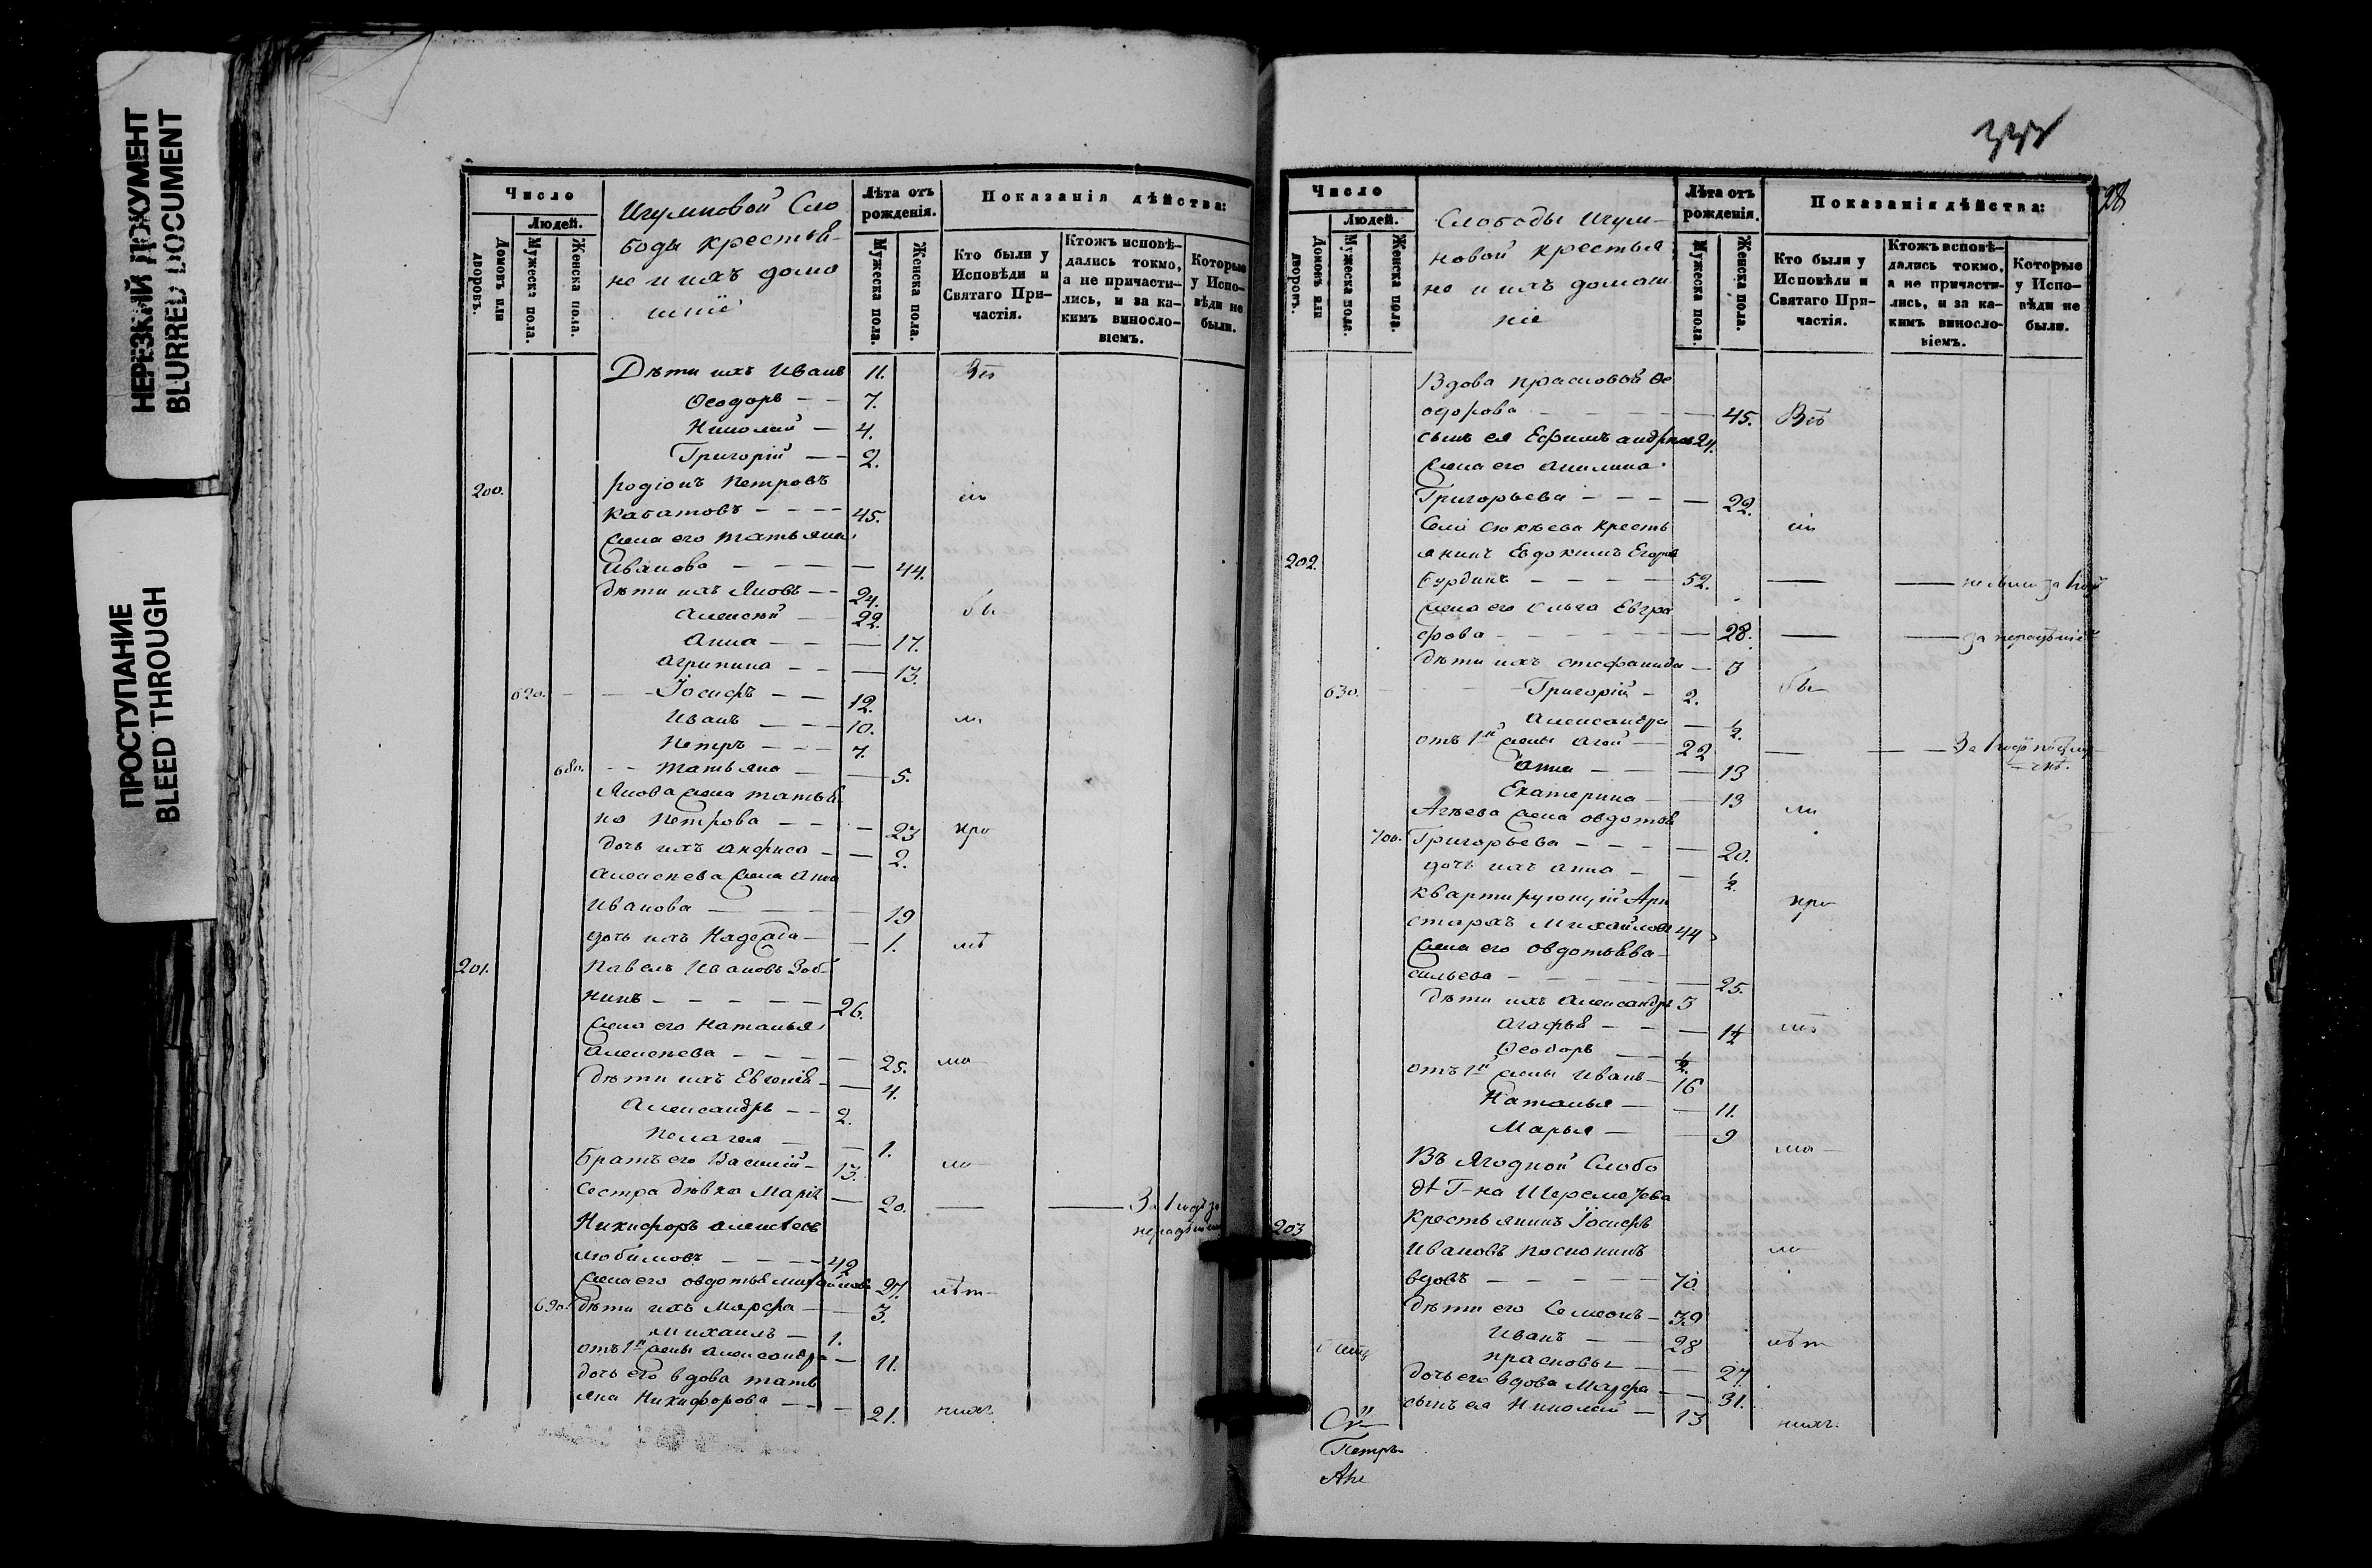 НЕРЕЗКИЙ ДОКУМЕНТ
BLURRED DOCUMENT
ПРОСТУПАНИЕ
BLEED THROUGH
Число
Людей.
Домовъ или дворовъ.
Мужеска пола.
Женска пола.
Игумновой Сло
боды крестья-
не и ихъ дома
шніе
Лѣта отъ рожденія.
Мужеска пола.
Женска пола.
Показанія дѣйства:
Кто были у Исповѣди и Святаго При-частія.
Ктожъ исповѣ-дались токмо, а не причасти-лись, и за ка-кимъ винословіемъ.
Которые у Испо-вѣди не были.
Дѣти ихъ Иванъ 11. Всѣ
Ѳеодоръ — 7.
Николай — 4.
Григорій — 2.
200. Родіонъ Петровъ
Кабатовъ — 45.
Жена его Татьяна
Иванова — 44.
дѣти ихъ Яковъ — 24.
Алексѣй — 22. бы
Анна — 17.
Агрипина — 13.
620. Іосифъ — 12.
Иванъ — 10. ли
Петръ — 7.
680. Татьяна — 5.
Якова жена Татья
на Петрова — 23 при
дочь ихъ Анфиса — 2.
Алексѣева жена Анна
Иванова — 19
дочь ихъ Надежда — 1.
201. Павелъ Ивановъ Зоб-
нинъ — 26.
Жена его Наталья
Алексѣева — 25.
дѣти ихъ Евгенія — 4.
Александръ — 2.
Пелагея — 1.
Братъ его Василій — 13.
Сестра дѣвка Марія — 20. — — За 1 годъ за
нерадѣніе
Никифоръ Алексѣевъ
Любимовъ — 42
Жена его Овдотья Михайлова 27.
690. дѣти ихъ Марфа — 3.
Михаилъ — 1.
отъ 1й жены Александра — 11.
дочь его вдова Тать
яна Никифорова — 21. нихъ
28
Число
Людей.
Домовъ или дворовъ.
Мужеска пола.
Женска пола.
Слободы Игум-
новой крестья
не и ихъ домаш
ніе
Лѣта отъ рожденія.
Мужеска пола.
Женска пола.
Показанія дѣйства:
Кто были у Исповѣди и Святаго При-частія.
Ктожъ исповѣ-дались токмо, а не причасти-лись, и за ка-кимъ винословіемъ.
Которые у Испо-вѣди не были.
Вдова Прасковья Ѳе
одорова — 45. Всѣ
сынъ ея Ефимъ 24.
Жена его Акилина
Григорьева — 22.
Села Сюкѣева кресть
202. янинъ Евдокимъ Егоровъ
Бурдинъ — 52. — —
Жена его Ольга Евгра
фова — 28. — — за нерадѣніе
дѣти ихъ Стефанида — 3
630. Григорій — 2. бы
Александра — ½.
отъ 1й жены Агѣй — 22 — — За 1 годъ
Анна — 13
Екатерина — 13 ли
Агѣева жена Овдотья
700. Григорьева — 20.
дочь ихъ Анна — ½.
Квартирующій Ари при
стархъ Михайловъ 44
Жена его Овдотья Ва-
сильева — 25.
дѣти ихъ Александръ 3
Агафья — 1½
Ѳеодоръ — ½.
отъ 1й жены Иванъ — 16
Наталья — 11.
Марья — 9
Въ Ягодной Слобо
дѣ Г-на Шереметева
203 Крестьянинъ Іосифъ
Ивановъ
вдовъ — 70.
дѣти его Семеонъ — 39
Иванъ — 28
Прасковья — 27.
дочь его вдова Марфа — 31.
сынъ ея Николай — 13 нихъ.
Петръ